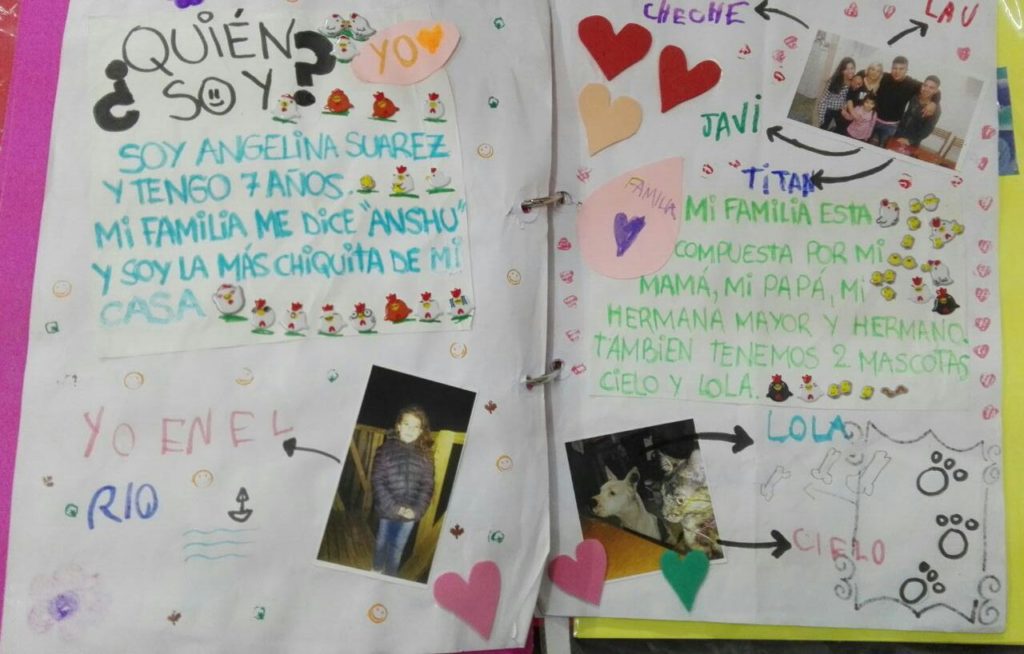 ¿QUIÉN
SOY?
YO
SOY ANGELINA SUAREZ
Y TENGO 7 AÑOS.
MI FAMILIA ME DICE "ANSHU"
Y SOY LA MÁS CHIQUITA DE MI
CASA
YO EN EL
RIO
CHECHE
LAU
JAVI
TITAN
FAMILIA
MI FAMILIA ESTA
COMPUESTA POR MI
MAMÁ, MI PAPÁ, MI
HERMANA MAYOR Y HERMANO.
TAMBIEN TENEMOS 2 MASCOTAS
CIELO Y LOLA.
LOLA
CIELO